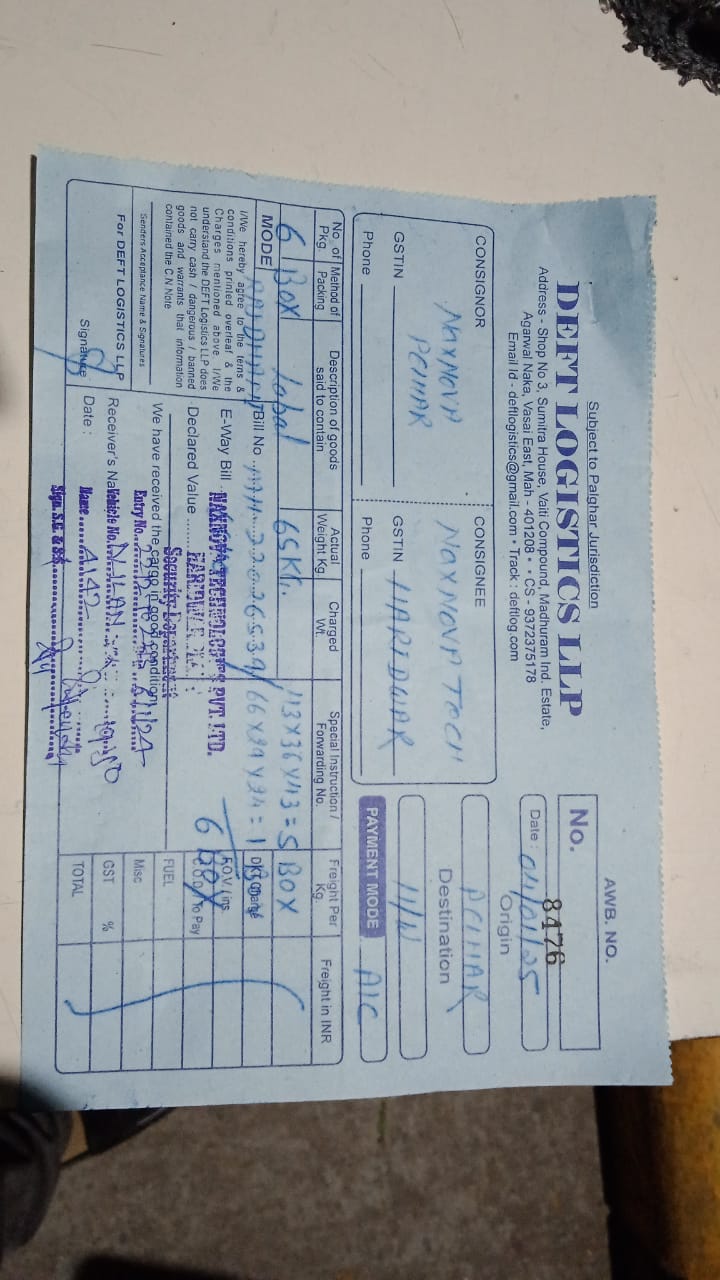 Subject to Palghar Jurisdiction
DEFT LOGISTICS LLP
Address - Shop No 3, Sumitra House, Vaiti Compound, Madhuram Ind. Estate,
Agarwal Naka, Vasai East, Mah - 401208 • • CS - 9372375178
Email Id - deftlogistics@gmail.com • Track : deftlog.com
AWB. NO.
No. 8476
Date : 04/01/25
Origin
PCIHAR
Destination
H/W
PAYMENT MODE A/C
CONSIGNOR
NAXNOVA
PCIHAR
GSTIN
Phone
CONSIGNEE
NAXNOVA TECH
GSTIN HARIDWAR
Phone
No. of Pkg Method of Packing Description of goods said to contain Actual Weight Kg Charged Wt. Special Instruction / Forwarding No. Freight Per Kg. Freight in INR
6 BOX Label 65 KG. 113X36X43=5 BOX
MODE Bill No 66X34X24=1
I/We hereby agree to the terns &
conditions printed overleaf & the
Charges mentioned above. I/We
understand the DEFT Logistics LLP does
not carry cash / dangerous / banned
goods and warrants that information
contained the C N Note
Senders Acceptance Name & Signatures
For DEFT LOGISTICS LLP
Signature
E-Way Bill
Declared Value
NAXNOVA TECHNOLOGIES PVT. LTD.
HARIDWAR
Security Department
We have received the cargo in good condition
Entry No.
Receiver's Na
Vehicle No.
Date :
Name
Sign. S.I. & S.G.
6 BOX
FOV / Ins
To Pay
FUEL
Misc
GST %
TOTAL